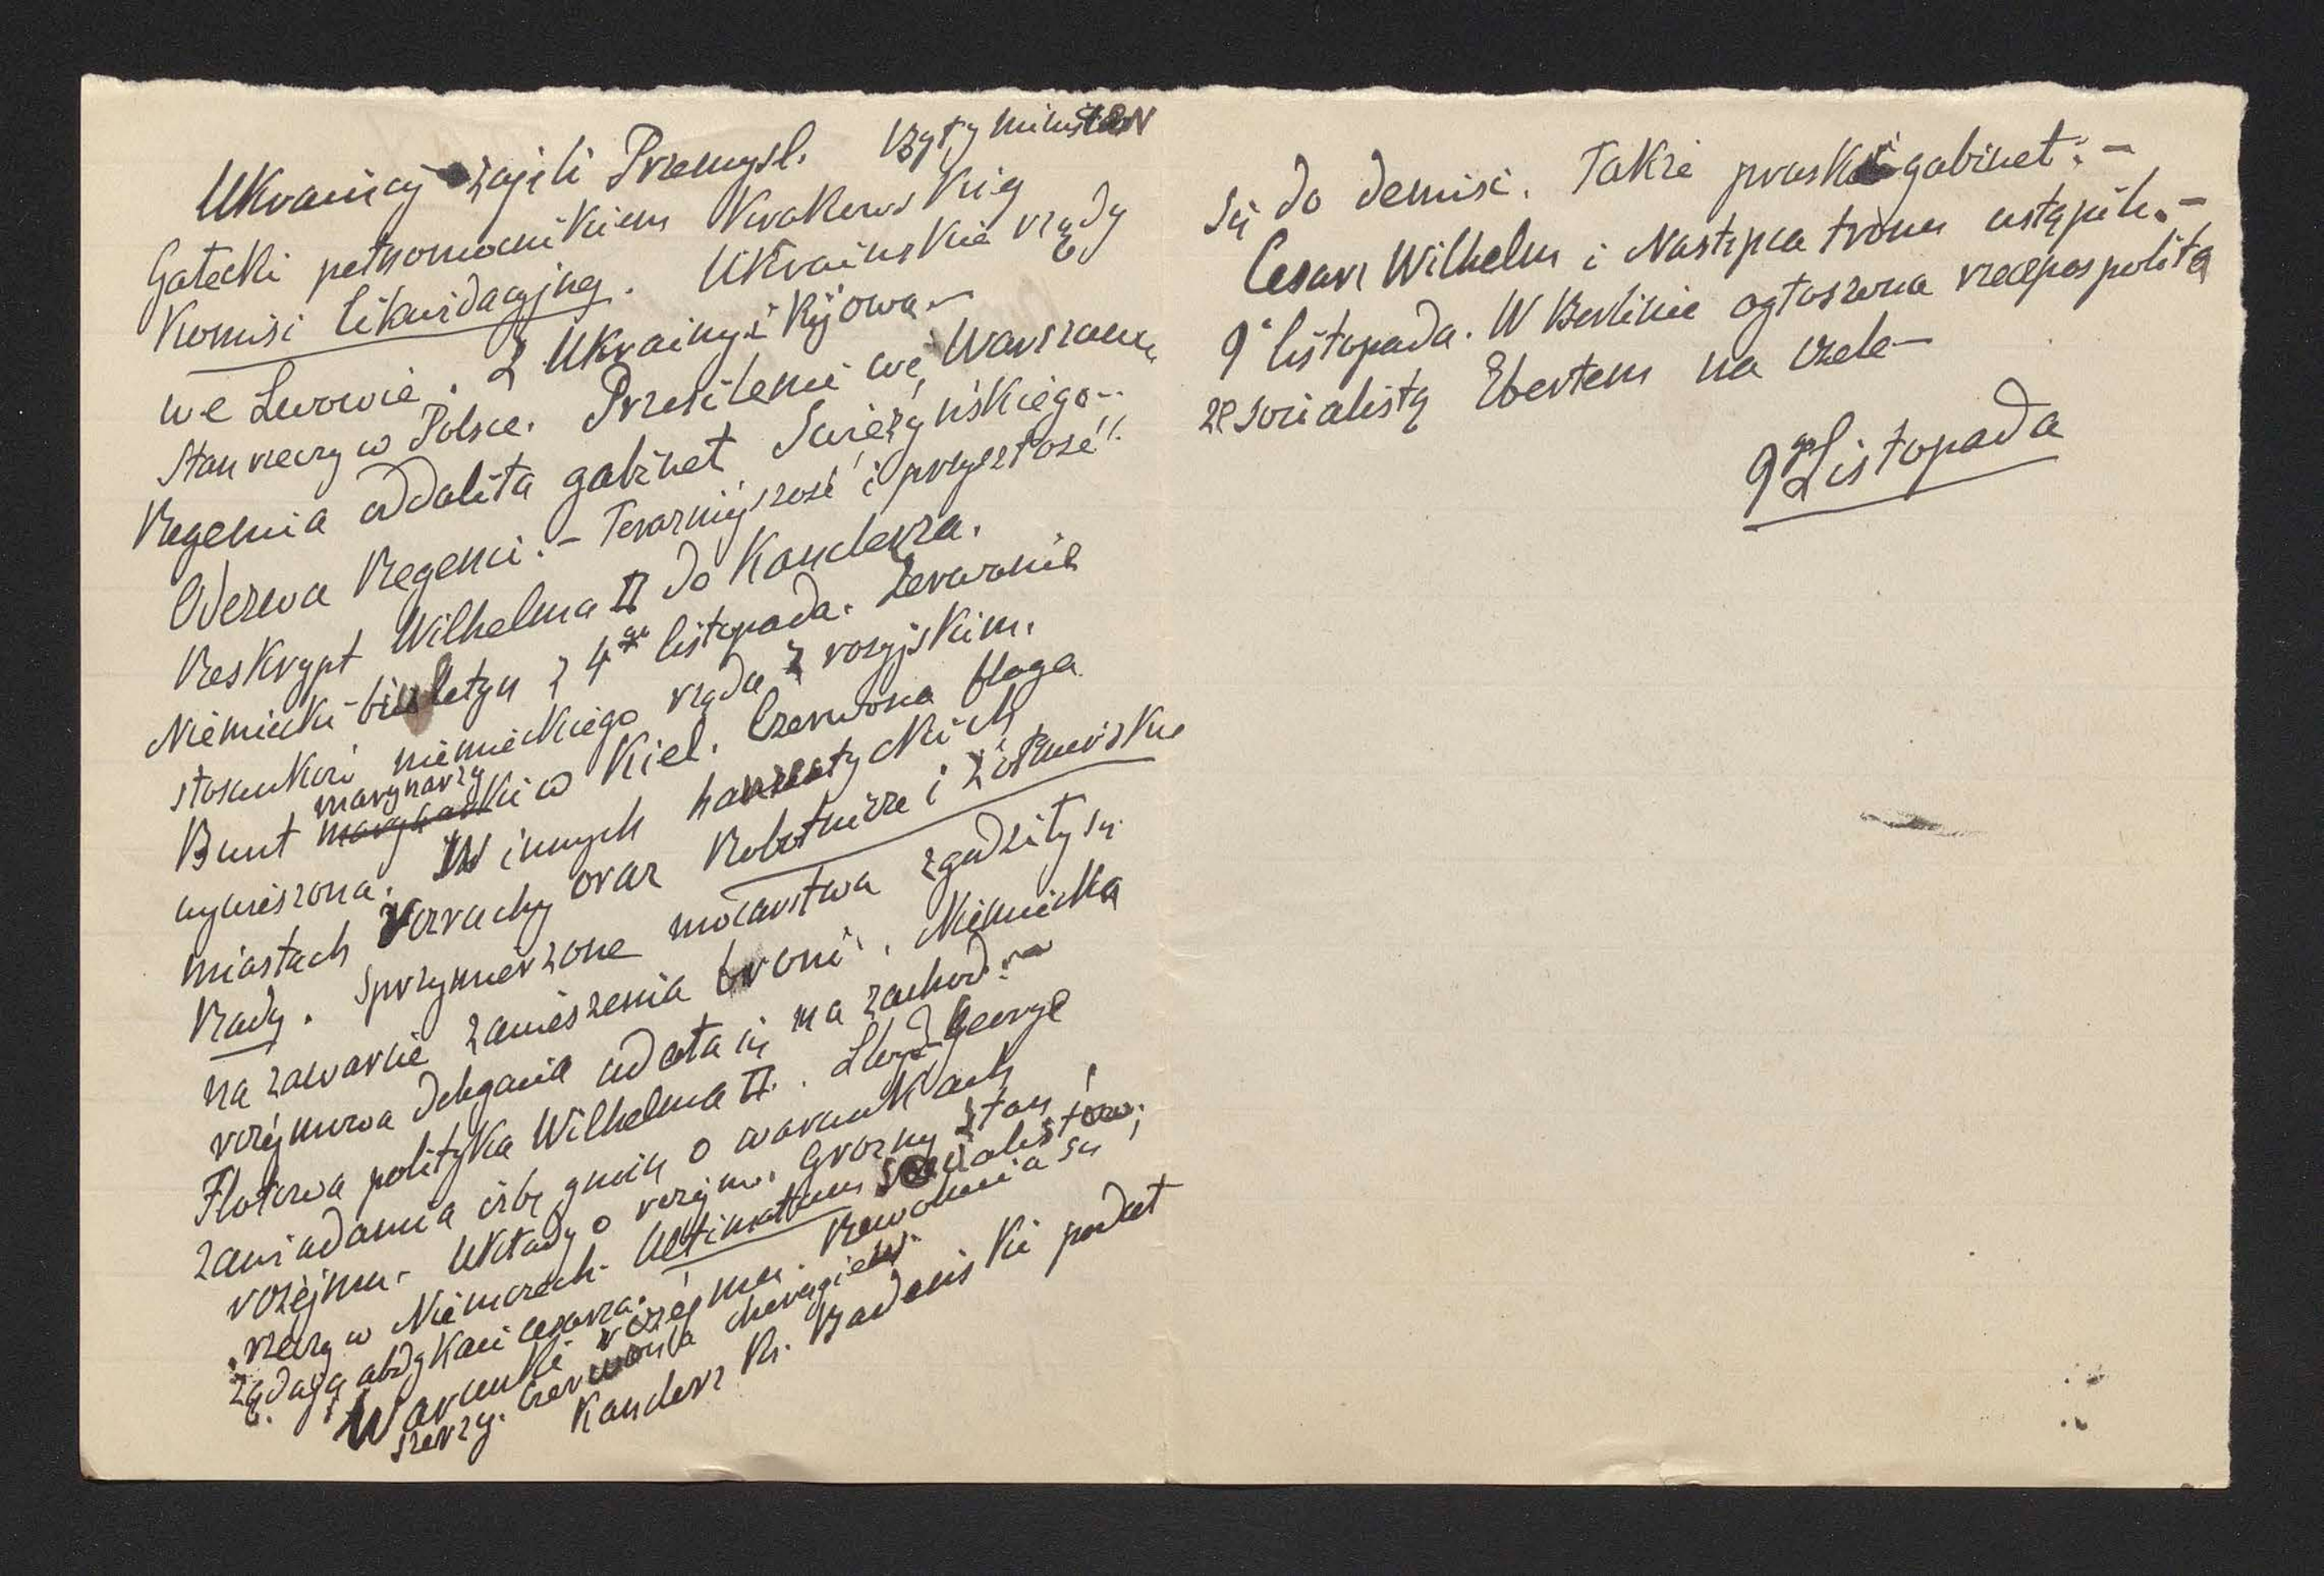 Ukraińcy zajęli Przemysl. Były minister
Gałecki pełnomocnikiem Krakowskiej
Komisi likwidacyjnej. Ukraińskie rządy
we Lwowie. Z Ukrainy i Kijowa.—
Stan rzeczy w Polsce. Przesilenie we Warszawie
Regencia oddaliła gabinet Swieżyńskiego..
Odezwa Regenci.— Teraźniejszość i przyszłość".
Reskrypt Wilhelma II do Kanclerza.
Niemiecki biuletyn z 4go listopada. Zerwanie
stosunków niemieckiego rządu z rosyjskim.
Bunt marynarzy w Kiel. Czerwona flaga
wywieszona. W innych hanzeatyckich
miastach rozruchy oraz Robotnicze i Żołnierskie
Rady. Sprzymierzone mocarstwa zgodziły się
na zawarcie zawieszenia broni. Niemiecka
rozejmowa delegacia udała się na zachod.—
Flotowa polityka Wilhelma II. Lloyd-George
zawiadamia izbę gmin o warunkach
rozejmu- Układy o rozejm. Grozny stan
rzeczy w Niemczech- Ultimatum socialistow;
żądają abdykacii cesarza.
Warunki rozejmu. Rewolucia się
szerzy. Czerwona chorągiew.
Kanclerz Ks. Badenski podał
się do demisi. Takze pruski gabinet.—
Cesarz Wilhelm i Nastepca tronu ustąpili.—
9° listopada. W Berlinie ogłoszona rzeczpospolita
ze socialistą Ebertem na czele—
9go Listopada